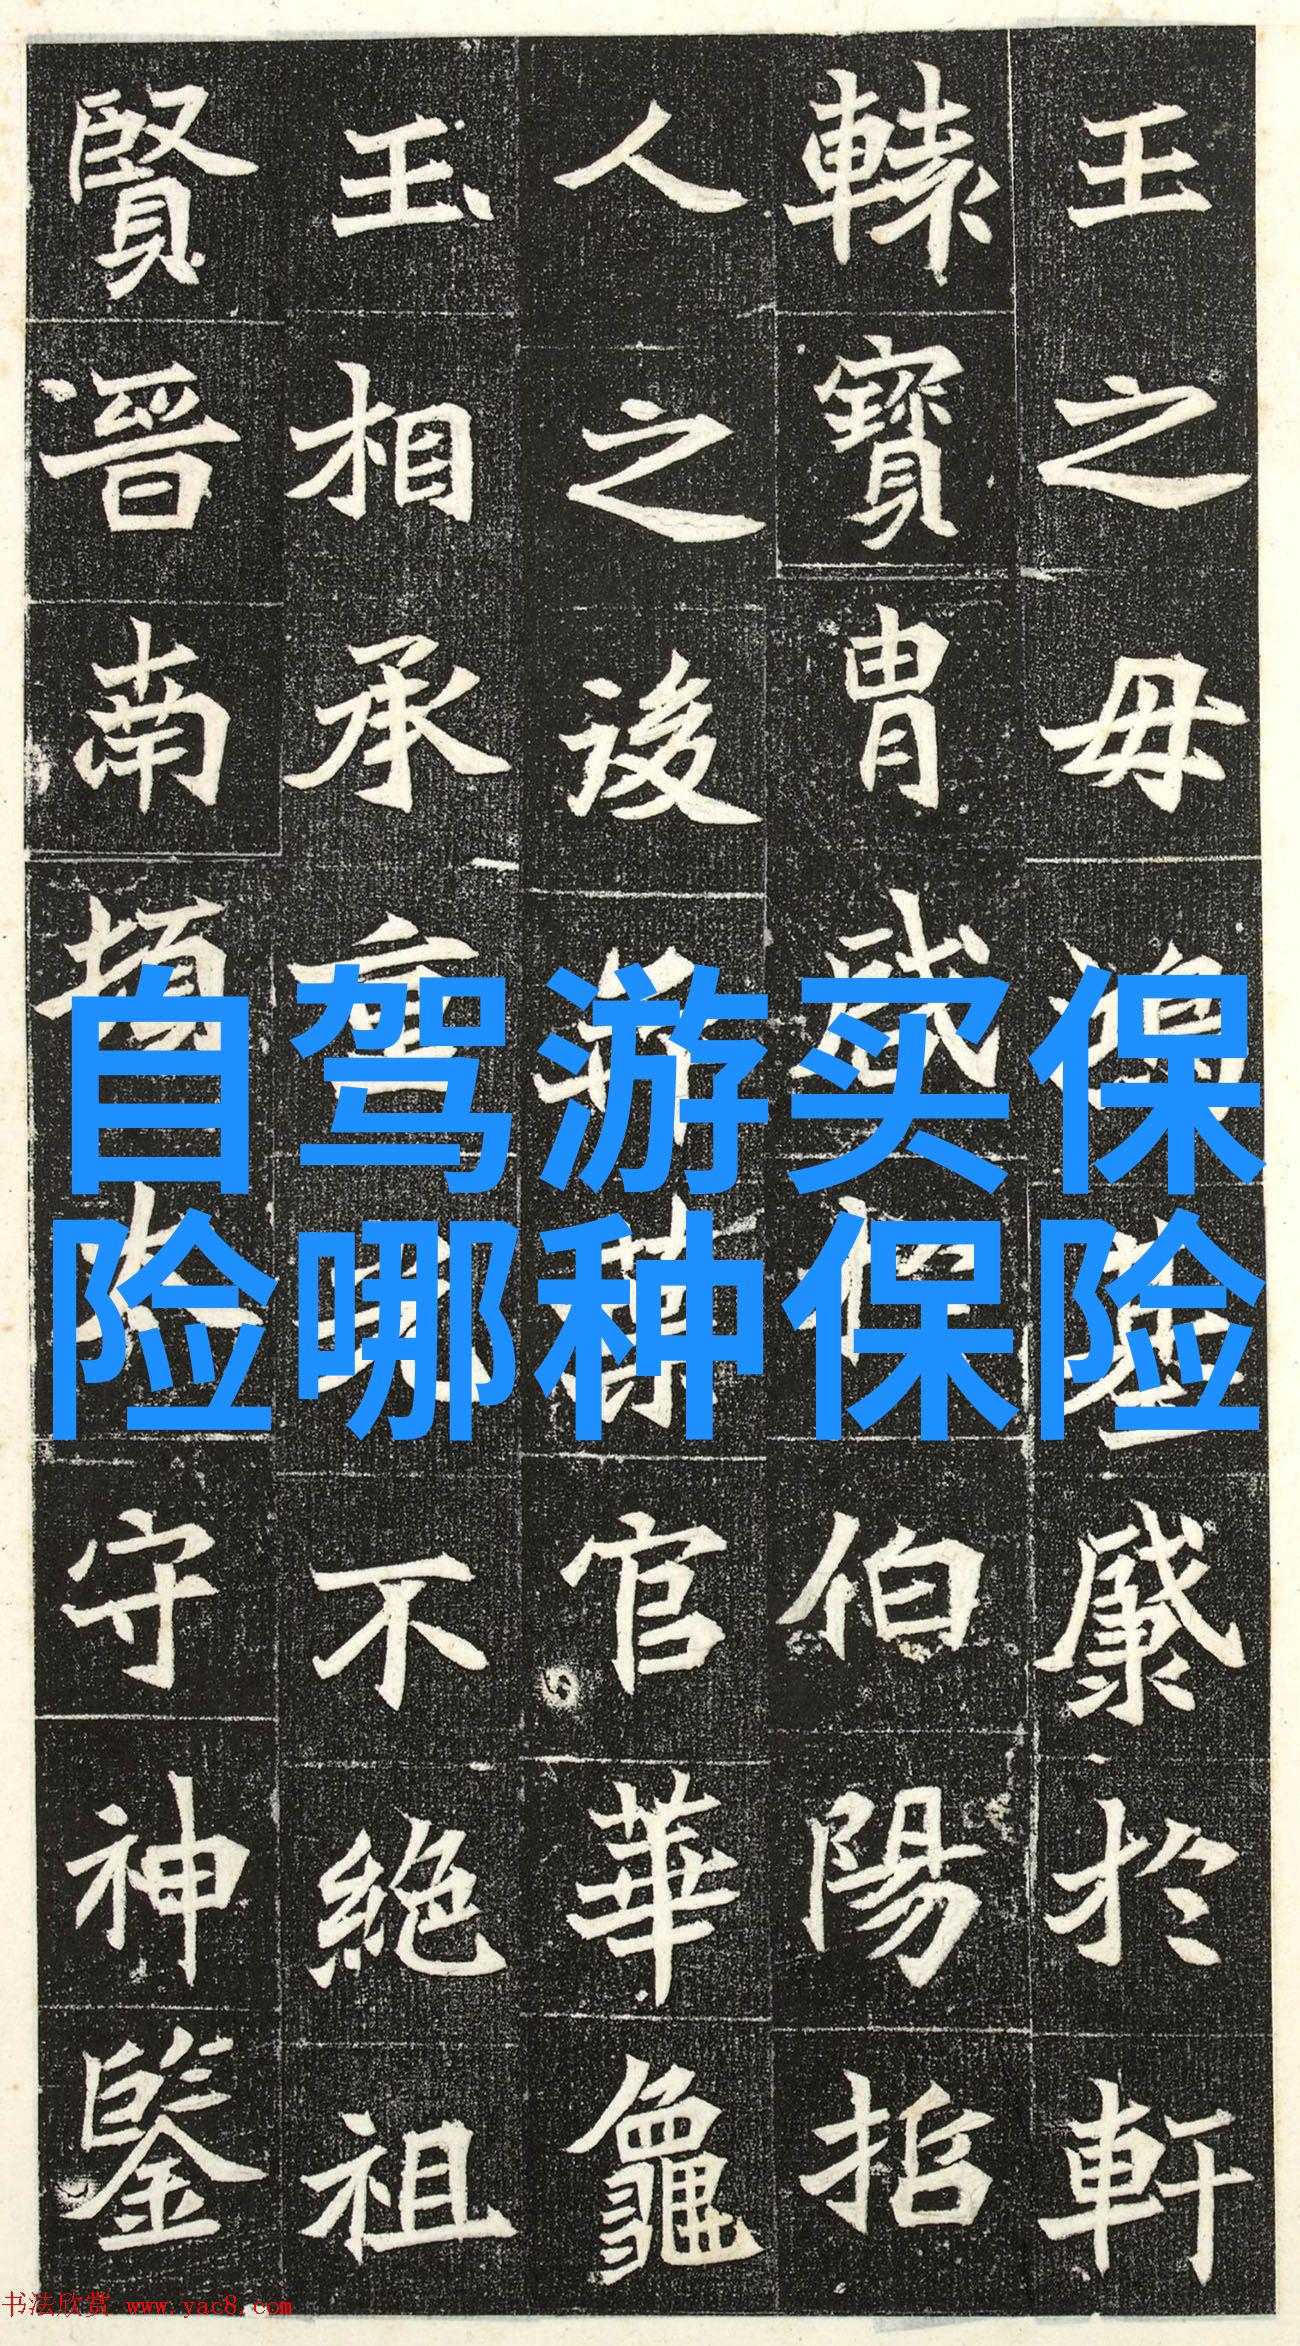 王之母於軒
轅寶胄伯陽
人之後官華龕
玉相承不絕祖
賢晉南頓守神鑒
自驾游买保
险哪种保险
书法欣赏 www.yac8.com